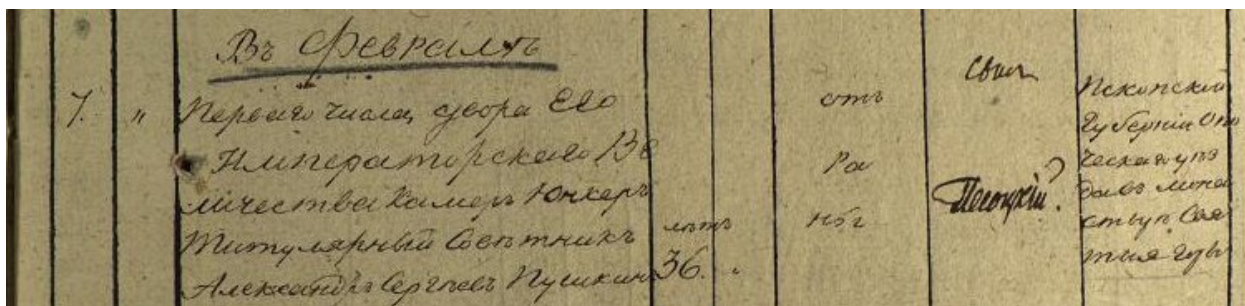 Въ Февралѣ
7. " Перваго числа, двора Его
Императорскаго Ве
личества Камеръ Юнкеръ
Титулярный Совѣтникъ
Александръ Сергѣевъ Пушкинъ
лѣтъ
36. "
отъ
ра
нъ
Свящ
Песоцкій.
Псковской
Губерніи Опо
ческаго уѣз
да въ мона
стырѣ Свя
тыя горы